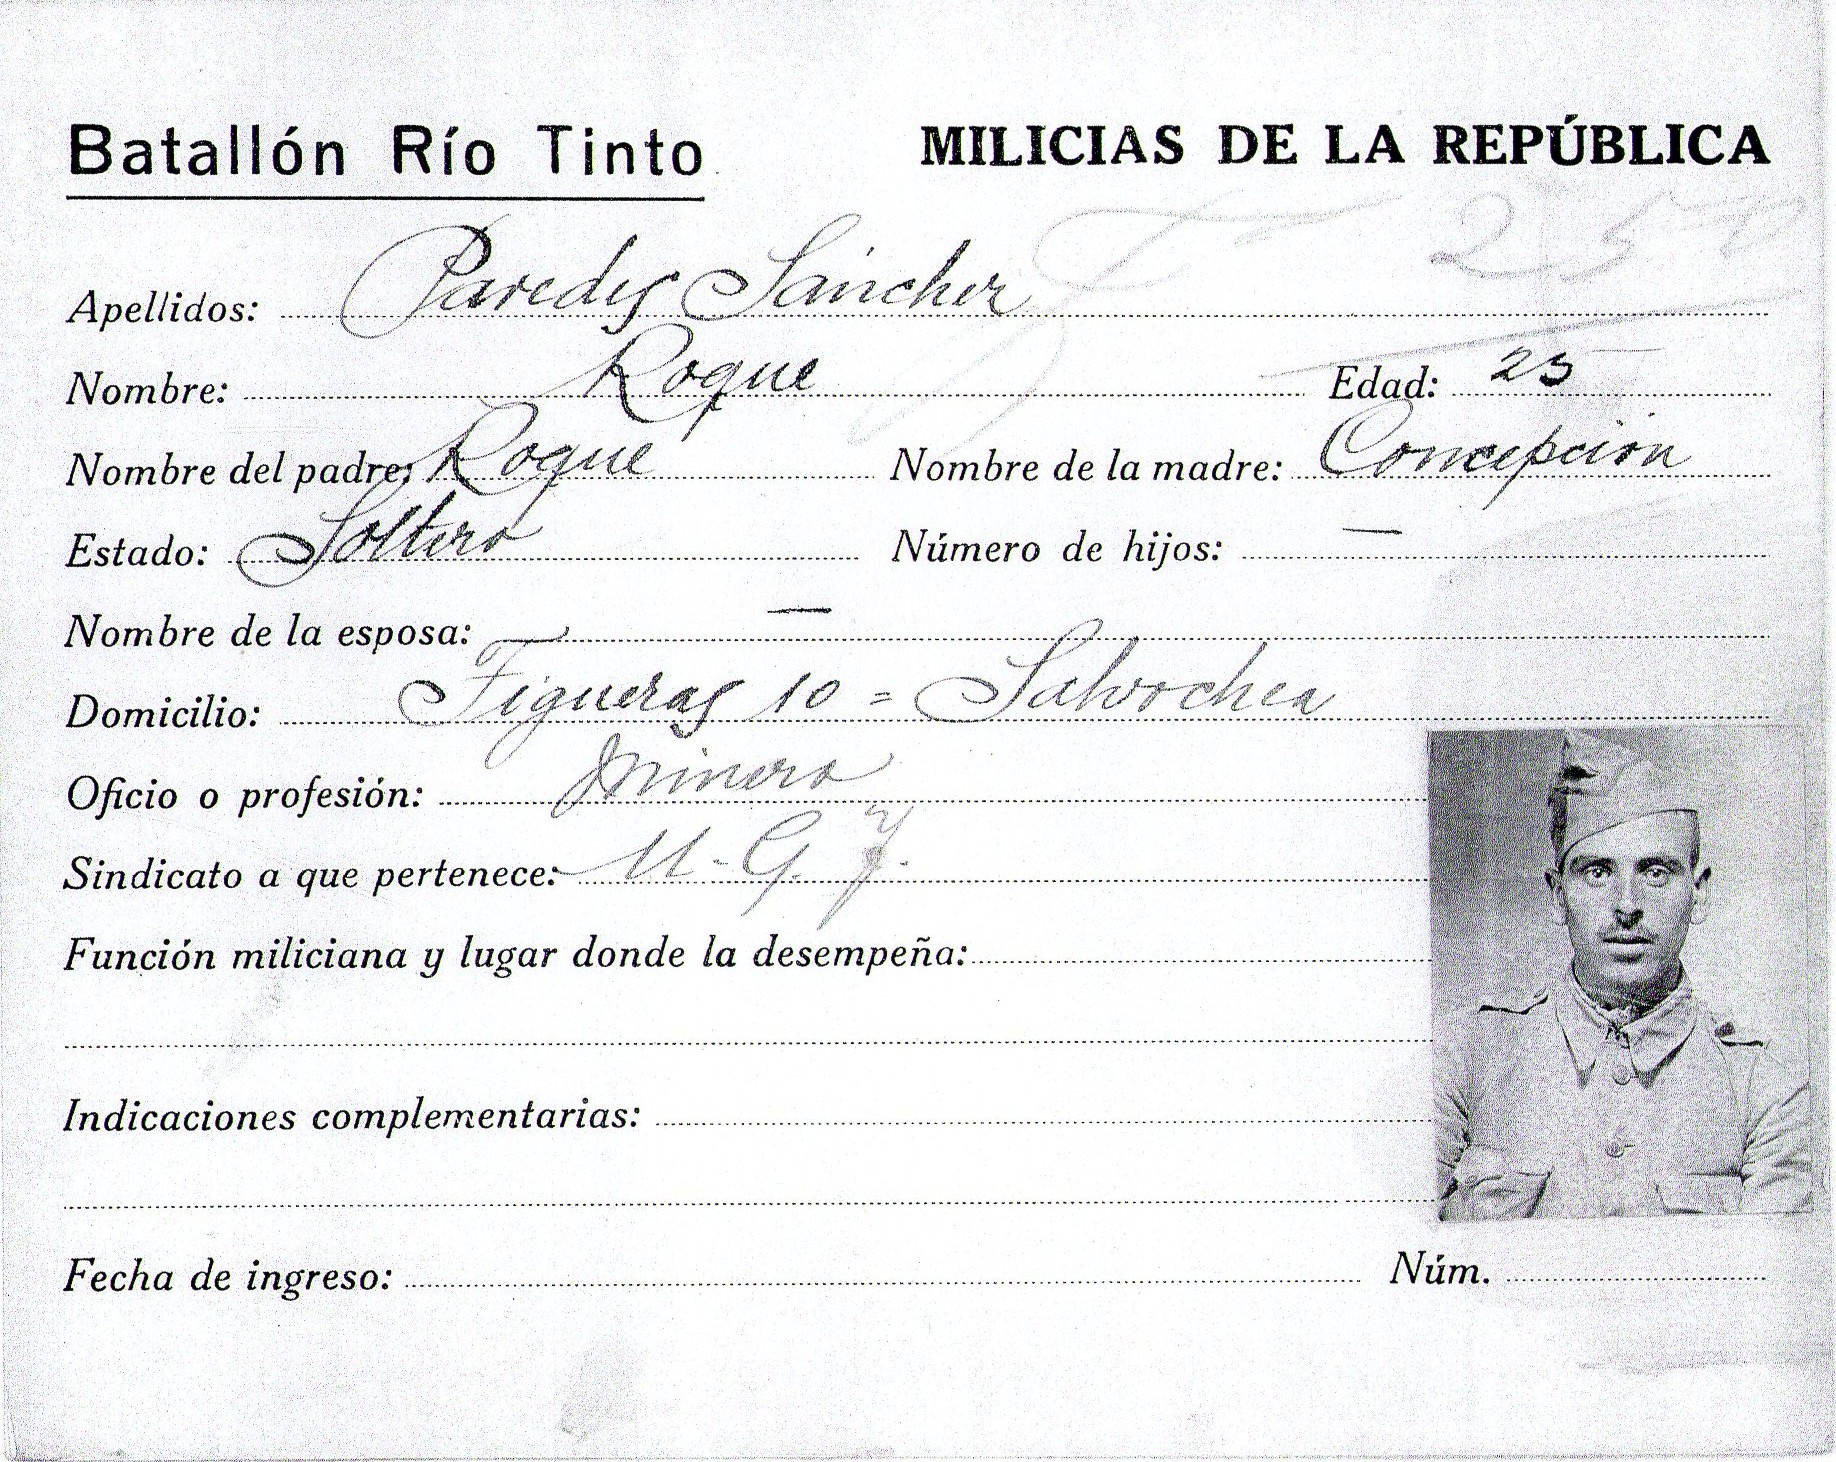 Batallón Río Tinto MILICIAS DE LA REPÚBLICA
Apellidos: Paredes Sáncher
Nombre: Roque Edad: 25
Nombre del padre: Roque Nombre de la madre: Concepción
Estado: Soltero Número de hijos: —
Nombre de la esposa: —
Domicilio: Figueras 10 = Salvochea
Oficio o profesión: minero
Sindicato a que pertenece: U. G. T.
Función miliciana y lugar donde la desempeña:
Indicaciones complementarias:
Fecha de ingreso: Núm.